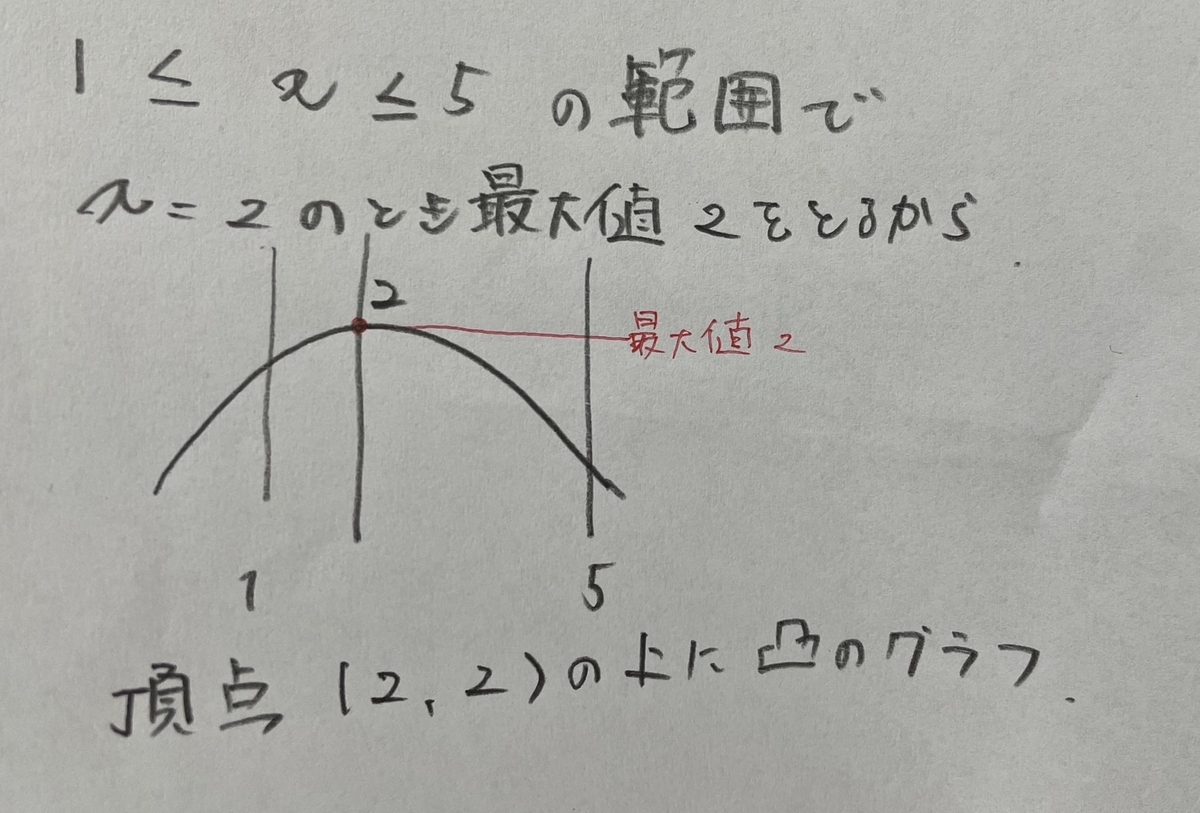 1 ≤ x ≤ 5 の範囲で
x = 2 のとき最大値 2 をとるから
2
最大値 2
1 5
頂点 (2, 2) の上に凸のグラフ.